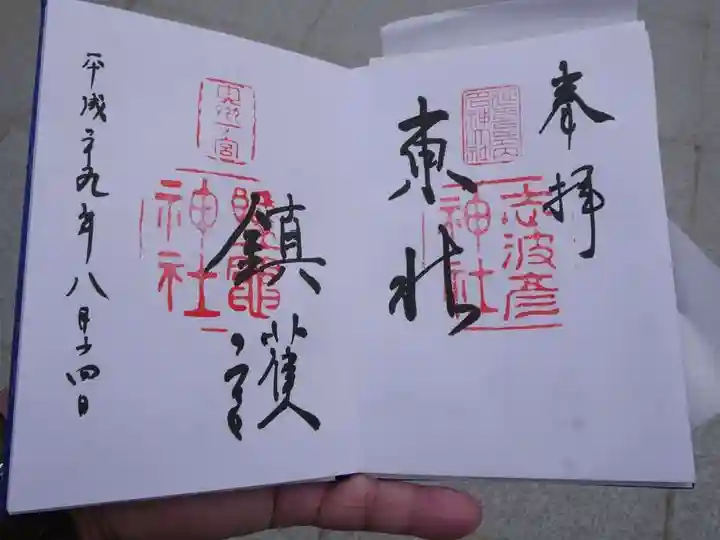 奉拝
志波彦
神社
東北
鎮護
奥州一宮
鹽竈
神社
平成二十九年八月十四日